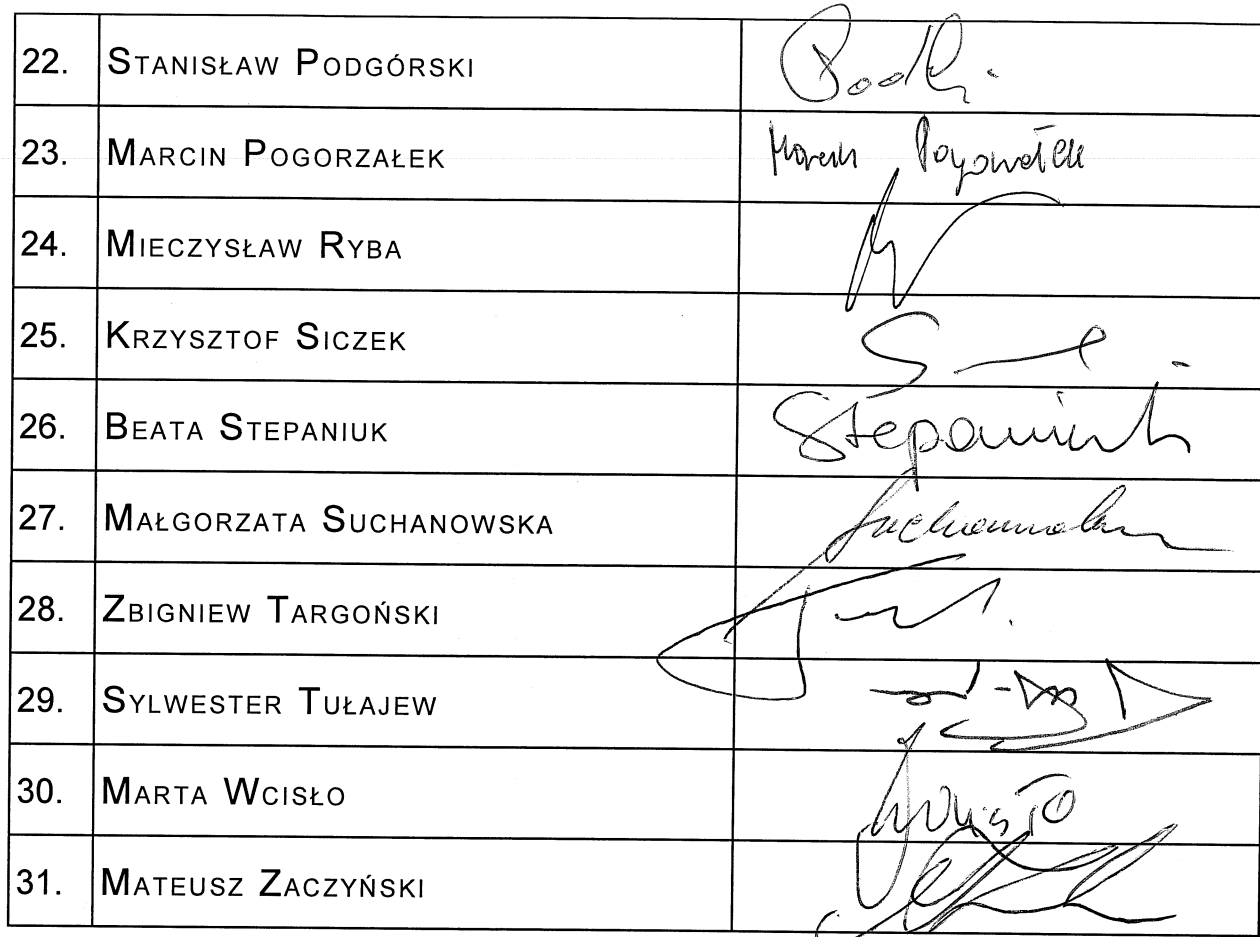 22. STANISŁAW PODGÓRSKI
23. MARCIN POGORZAŁEK
24. MIECZYSŁAW RYBA
25. KRZYSZTOF SICZEK
26. BEATA STEPANIUK Stepaniuk
27. MAŁGORZATA SUCHANOWSKA
28. ZBIGNIEW TARGOŃSKI
29. SYLWESTER TUŁAJEW
30. MARTA WCISŁO
31. MATEUSZ ZACZYŃSKI